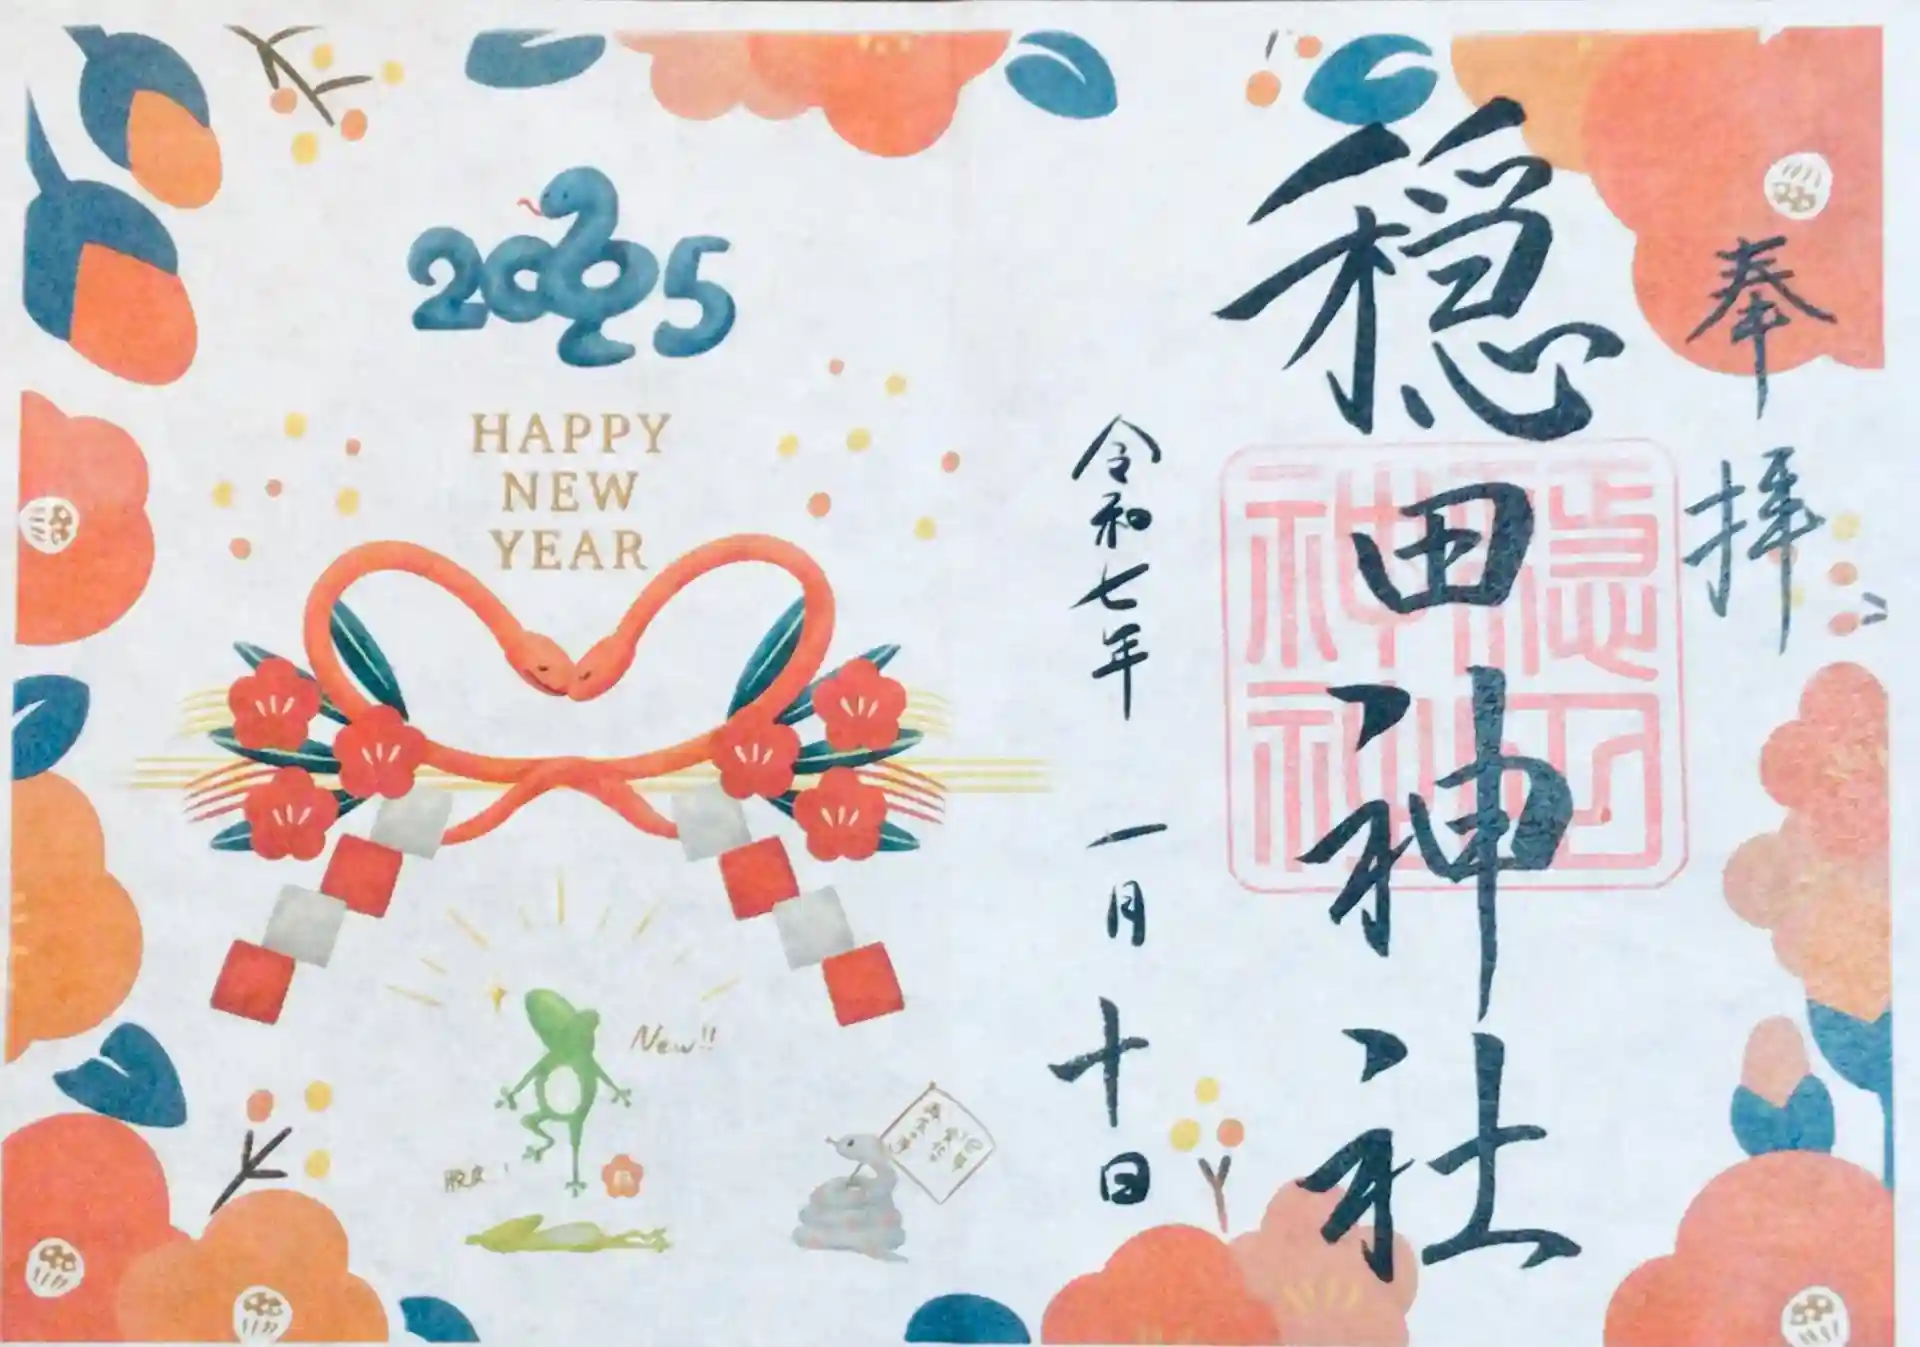 奉拝
穏田神社
穏田
神社
令和七年 一月 十日
2025
HAPPY
NEW
YEAR
New!!
脱皮!